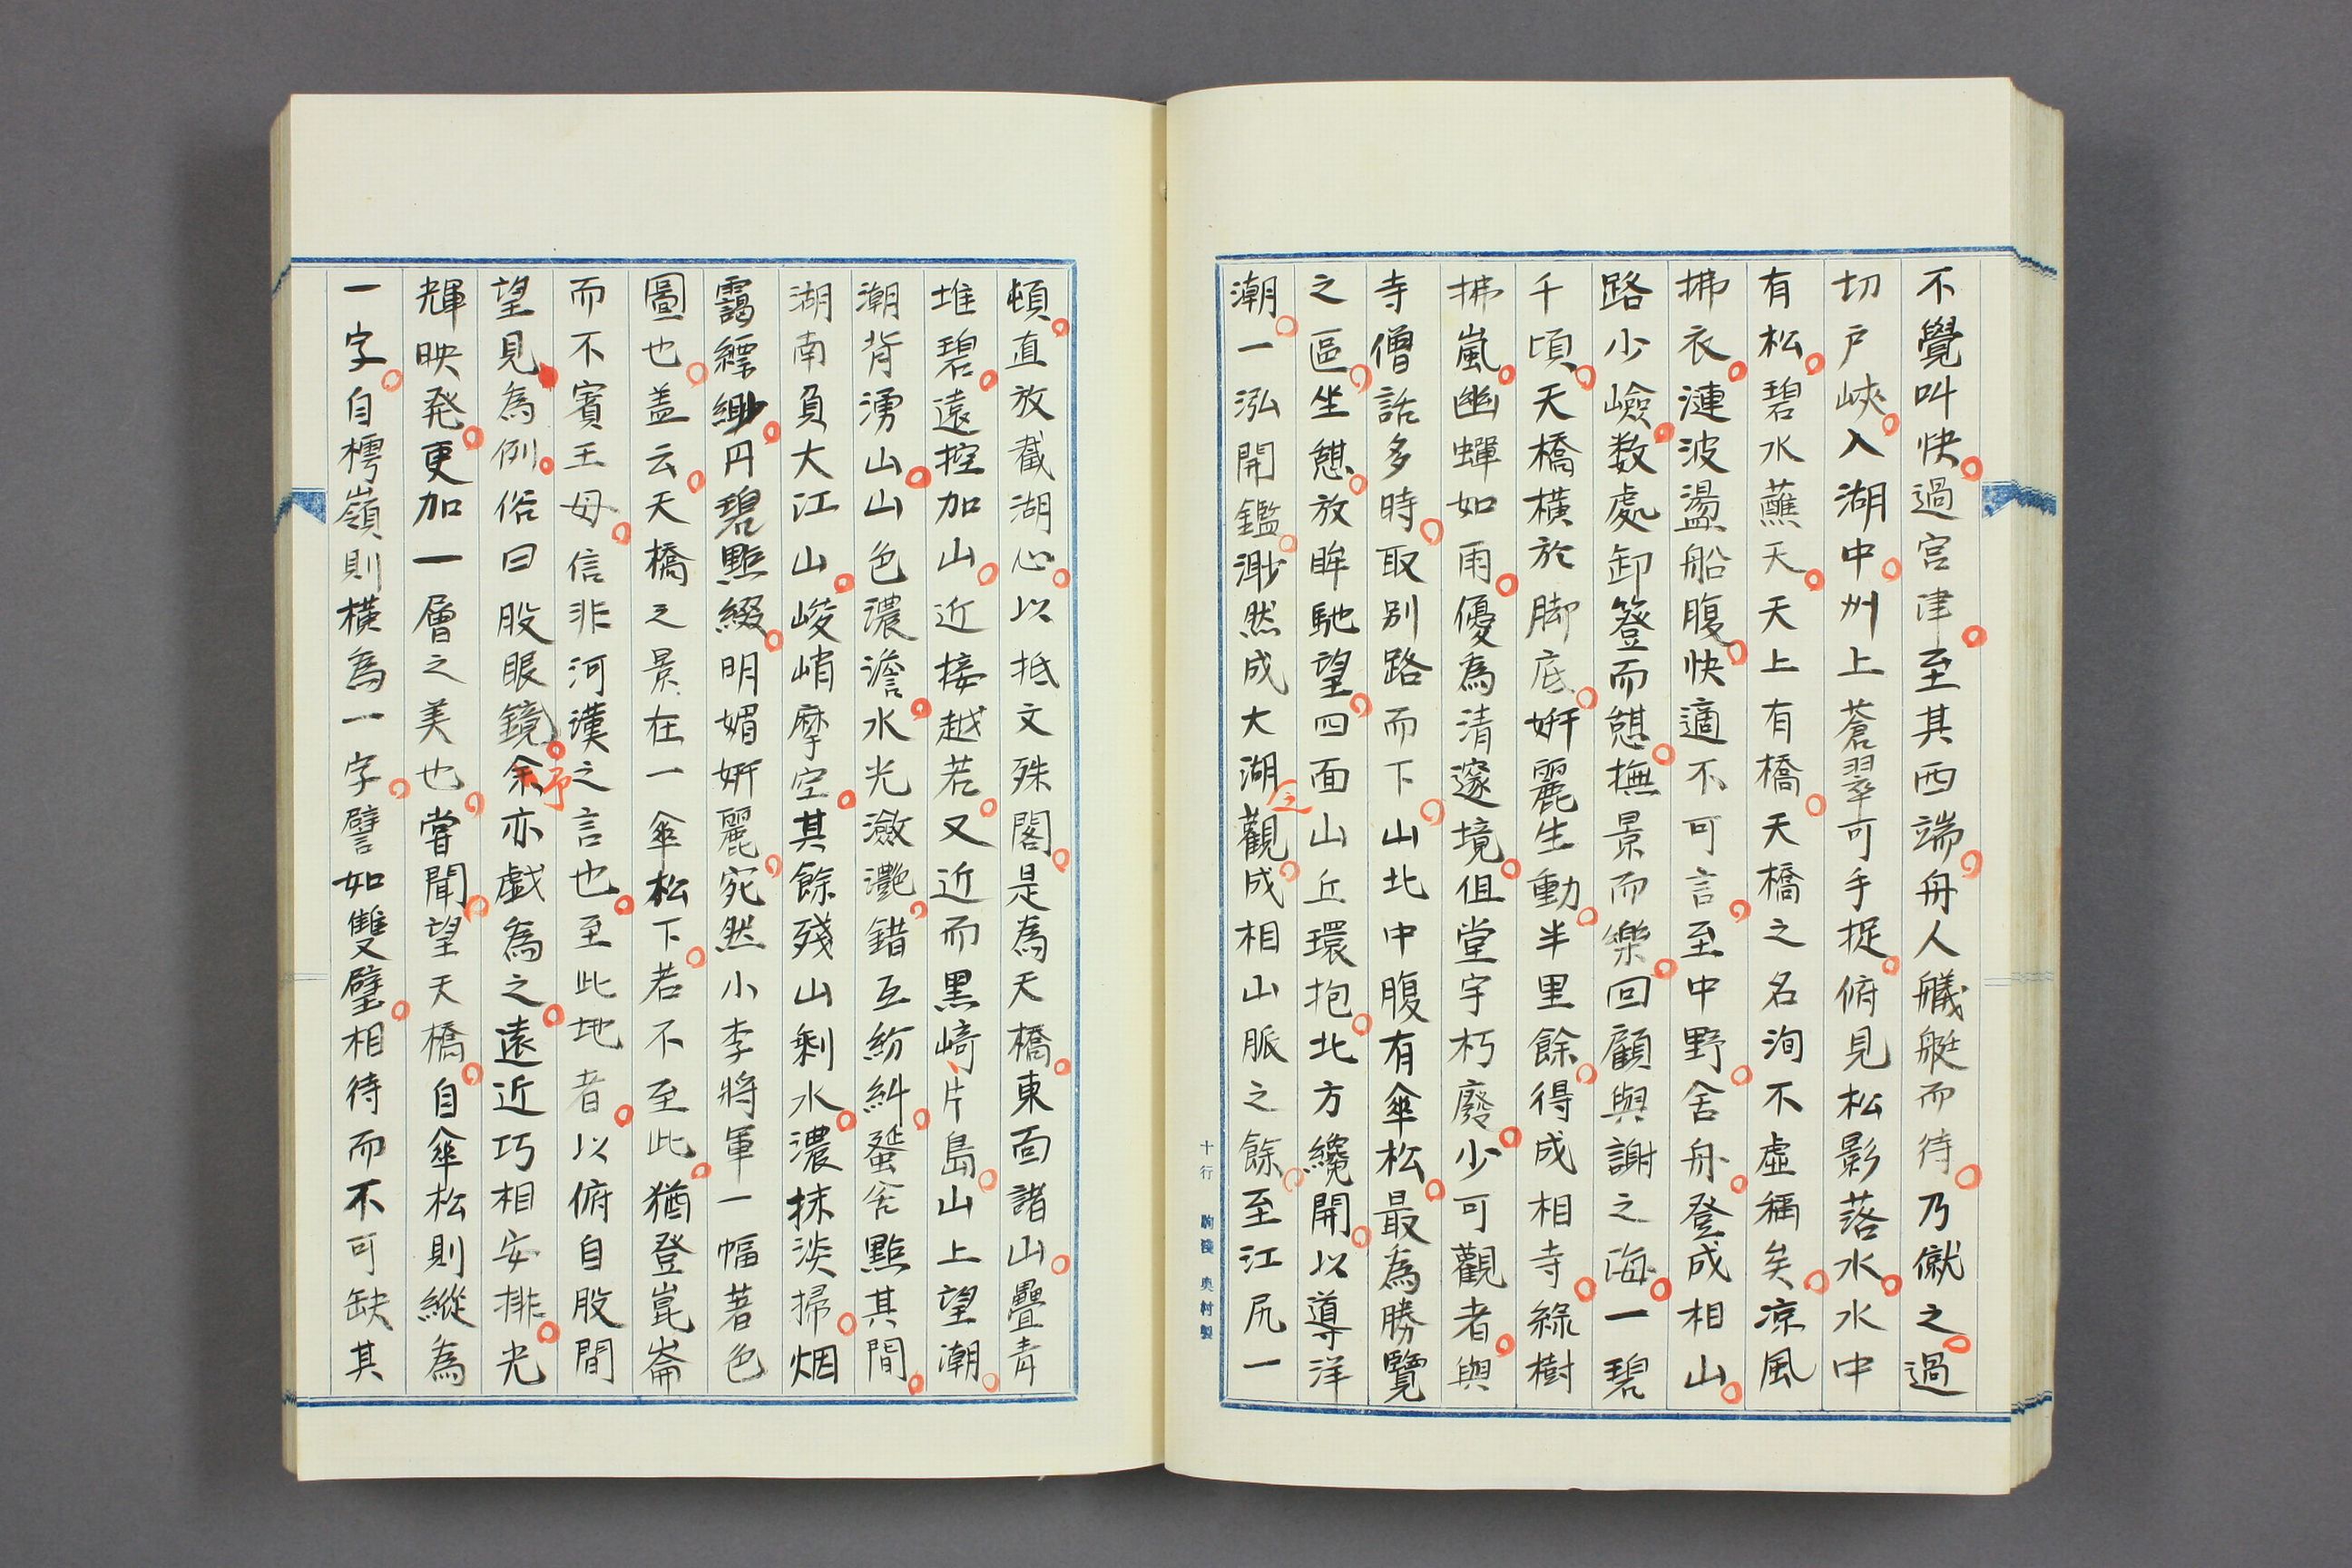 不覺叫快過宮津至其西端舟人艤艇而待乃僦之過
切戸峽入湖中州上蒼翠可手捉俯見松影落水水中
有松碧水蘸天天上有橋天橋之名洵不虛稱矣凉風
拂衣漣波盪船腹快適不可言至中野舍舟登成相山
路少嶮数處卸簦而憩撫景而樂回顧與謝之海一碧
千頃天橋橫於脚底妍麗生動半里餘得成相寺綠樹
拂嵐幽蟬如雨優為清邃境但堂宇朽廢少可觀者與
寺僧話多時取別路而下山北中腹有傘松最為勝覽
之區坐憩放眸馳望四面山丘環抱北方纔開以導洋
潮一泓開鑑渺然成大湖之觀成相山脈之餘至江尻一
頓直放截湖心以抵文殊閣是為天橋東面諸山疊青
堆碧遠控加山近接越若又近而黒﨑片島山上望潮
潮背湧山山色濃澹水光瀲灔錯互紛糾蜑舍點其間
湖南負大江山峻峭摩空其餘殘山剰水濃抹淡掃烟
靄縹緲円碧點綴明媚妍麗宛然小李將軍一幅著色
圖也盖云天橋之景在一傘松下若不至此猶登崑崙
而不賓王母信非河漢之言也至此地者以俯自股間
望見為例俗曰股眼鏡余予亦戯為之遠近巧相安排光
輝映発更加一層之美也嘗聞望天橋自傘松則縱為
一字自樗嶺則橫為一字譬如雙璧相待而不可缺其
十行 奥村製